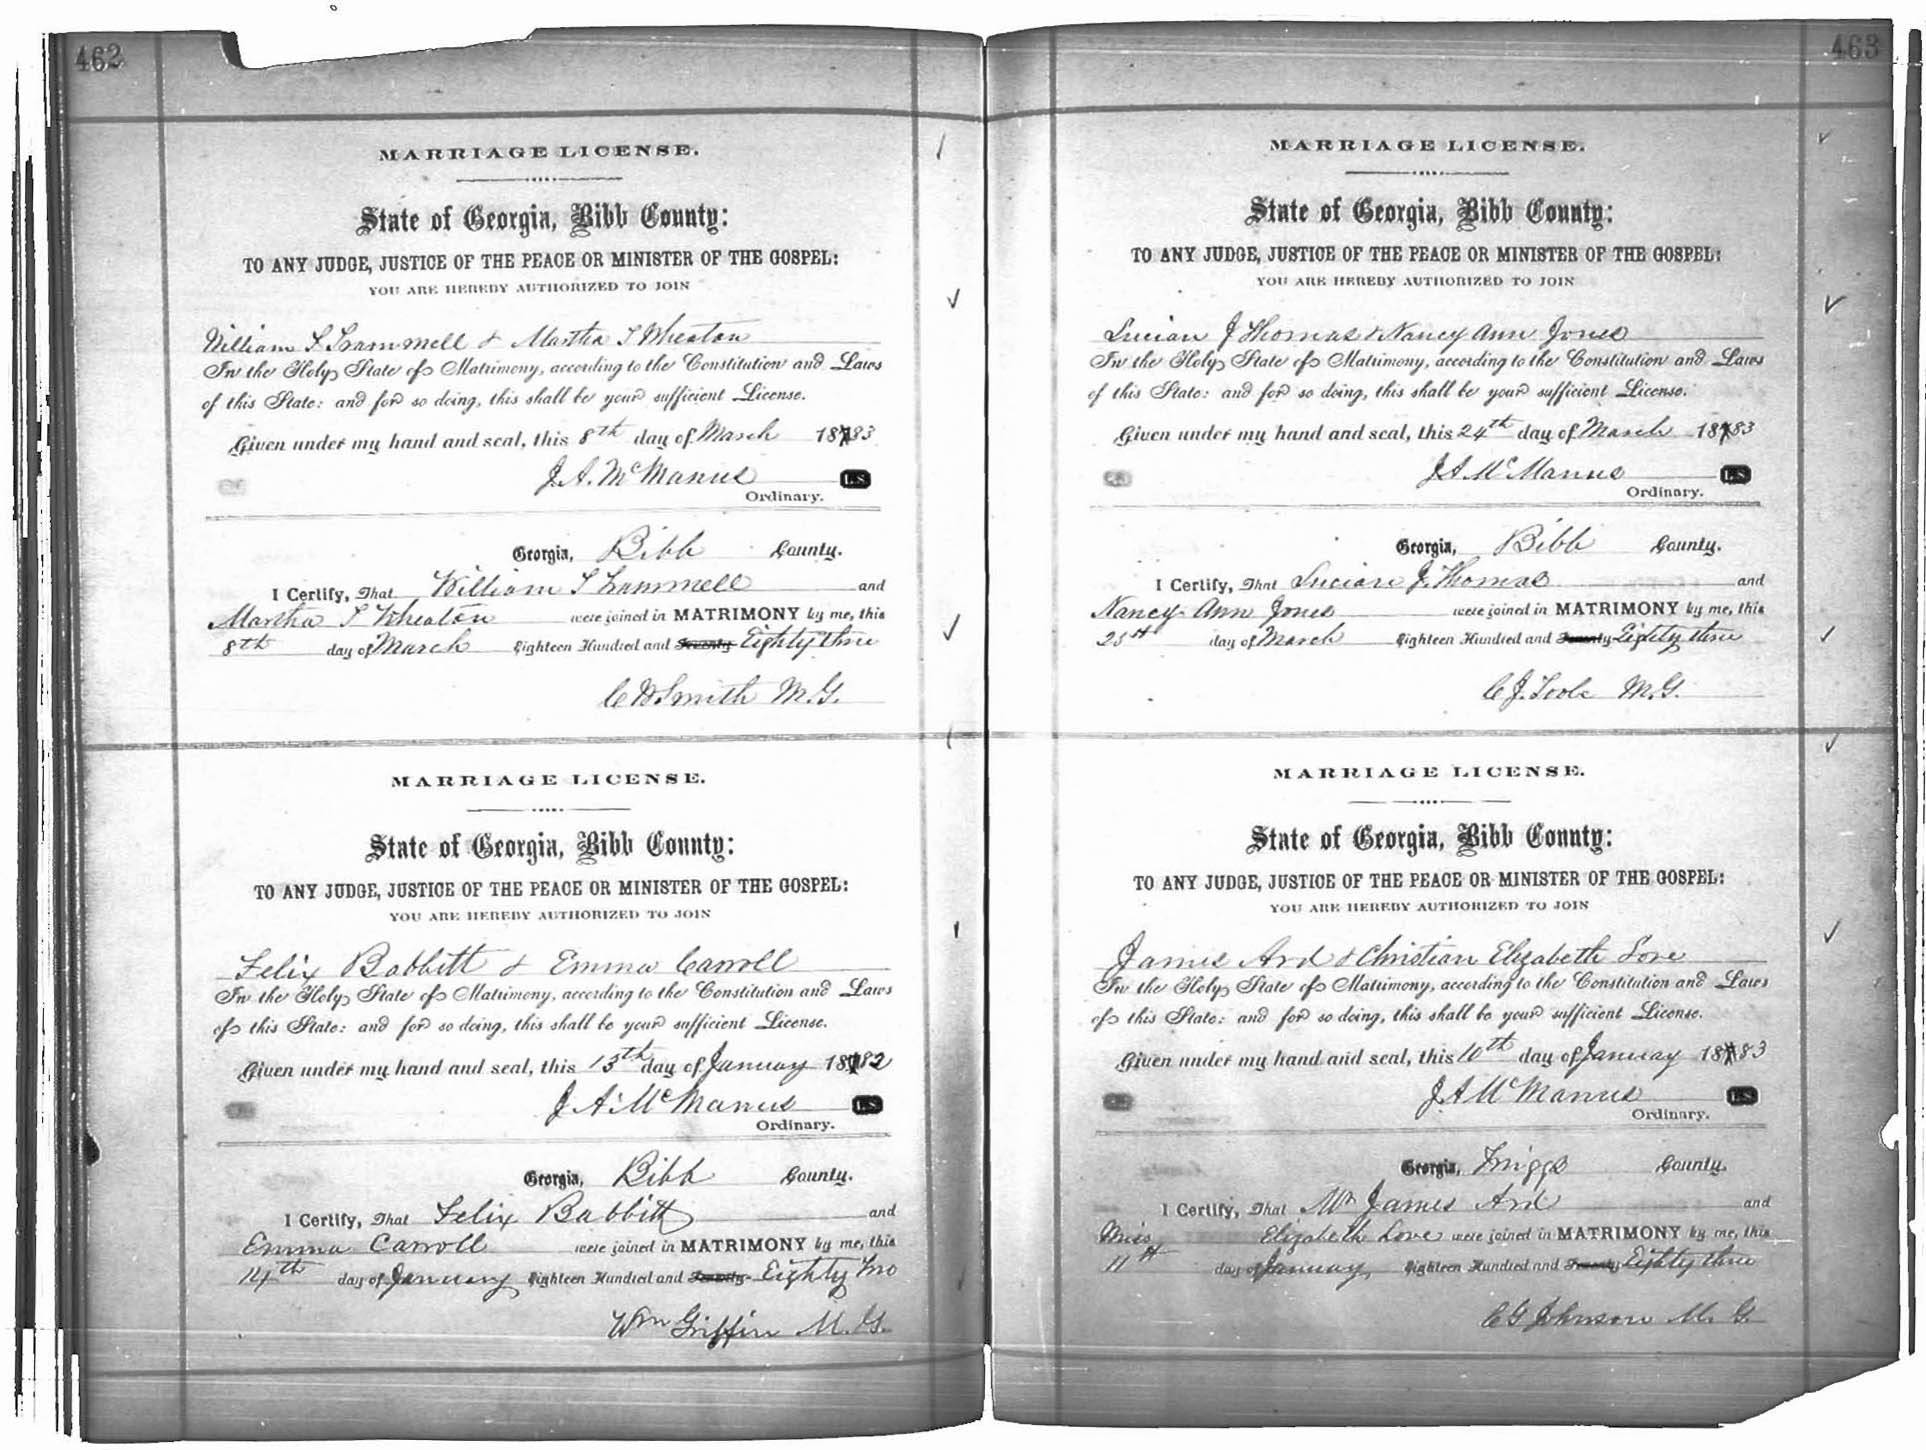 462
MARRIAGE LICENSE.
State of Georgia, Bibb County:
TO ANY JUDGE, JUSTICE OF THE PEACE OR MINISTER OF THE GOSPEL:
YOU ARE HEREBY AUTHORIZED TO JOIN
William T Trammell & Martha T Wheaton
In the Holy State of Matrimony, according to the Constitution and Laws
of this State: and for so doing, this shall be your sufficient License.
Given under my hand and seal, this 8th day of March 18783
J. A. McManus L.S.
Ordinary.
Georgia, Bibb County.
I Certify, That William T Trammell and
Martha T Wheaton were joined in MATRIMONY by me, this
8th day of March Eighteen Hundred and Seventy Eighty three
C W Smith M.G.
MARRIAGE LICENSE.
State of Georgia, Bibb County:
TO ANY JUDGE, JUSTICE OF THE PEACE OR MINISTER OF THE GOSPEL:
YOU ARE HEREBY AUTHORIZED TO JOIN
Felix Babbitt & Emma Carroll
In the Holy State of Matrimony, according to the Constitution and Laws
of this State: and for so doing, this shall be your sufficient License.
Given under my hand and seal, this 13th day of January 18782
J A McManus L.S.
Ordinary.
Georgia, Bibb County.
I Certify, That Felix Babbitt and
Emma Carroll were joined in MATRIMONY by me, this
14th day of January Eighteen Hundred and Seventy Eighty Two
Wm Griffin M.G.
463
MARRIAGE LICENSE.
State of Georgia, Bibb County:
TO ANY JUDGE, JUSTICE OF THE PEACE OR MINISTER OF THE GOSPEL:
YOU ARE HEREBY AUTHORIZED TO JOIN
Lucian J Thomas & Nancy Ann Jones
In the Holy State of Matrimony, according to the Constitution and Laws
of this State: and for so doing, this shall be your sufficient License.
Given under my hand and seal, this 24th day of March 18783
J A McManus L.S.
Ordinary.
Georgia, Bibb County.
I Certify, That Lucian J. Thomas and
Nancy Ann Jones were joined in MATRIMONY by me, this
25th day of March Eighteen Hundred and Seventy Eighty three
C J. Toole M.G.
MARRIAGE LICENSE.
State of Georgia, Bibb County:
TO ANY JUDGE, JUSTICE OF THE PEACE OR MINISTER OF THE GOSPEL:
YOU ARE HEREBY AUTHORIZED TO JOIN
James Ard & Christian Elizabeth Love
In the Holy State of Matrimony, according to the Constitution and Laws
of this State: and for so doing, this shall be your sufficient License.
Given under my hand and seal, this 10th day of January 18783
J A McManus L.S.
Ordinary.
Georgia, Twiggs County.
I Certify, That Mr James Ard and
Miss Elizabeth Love were joined in MATRIMONY by me, this
11th day of January Eighteen Hundred and Seventy Eighty three
C G Johnson M. G.